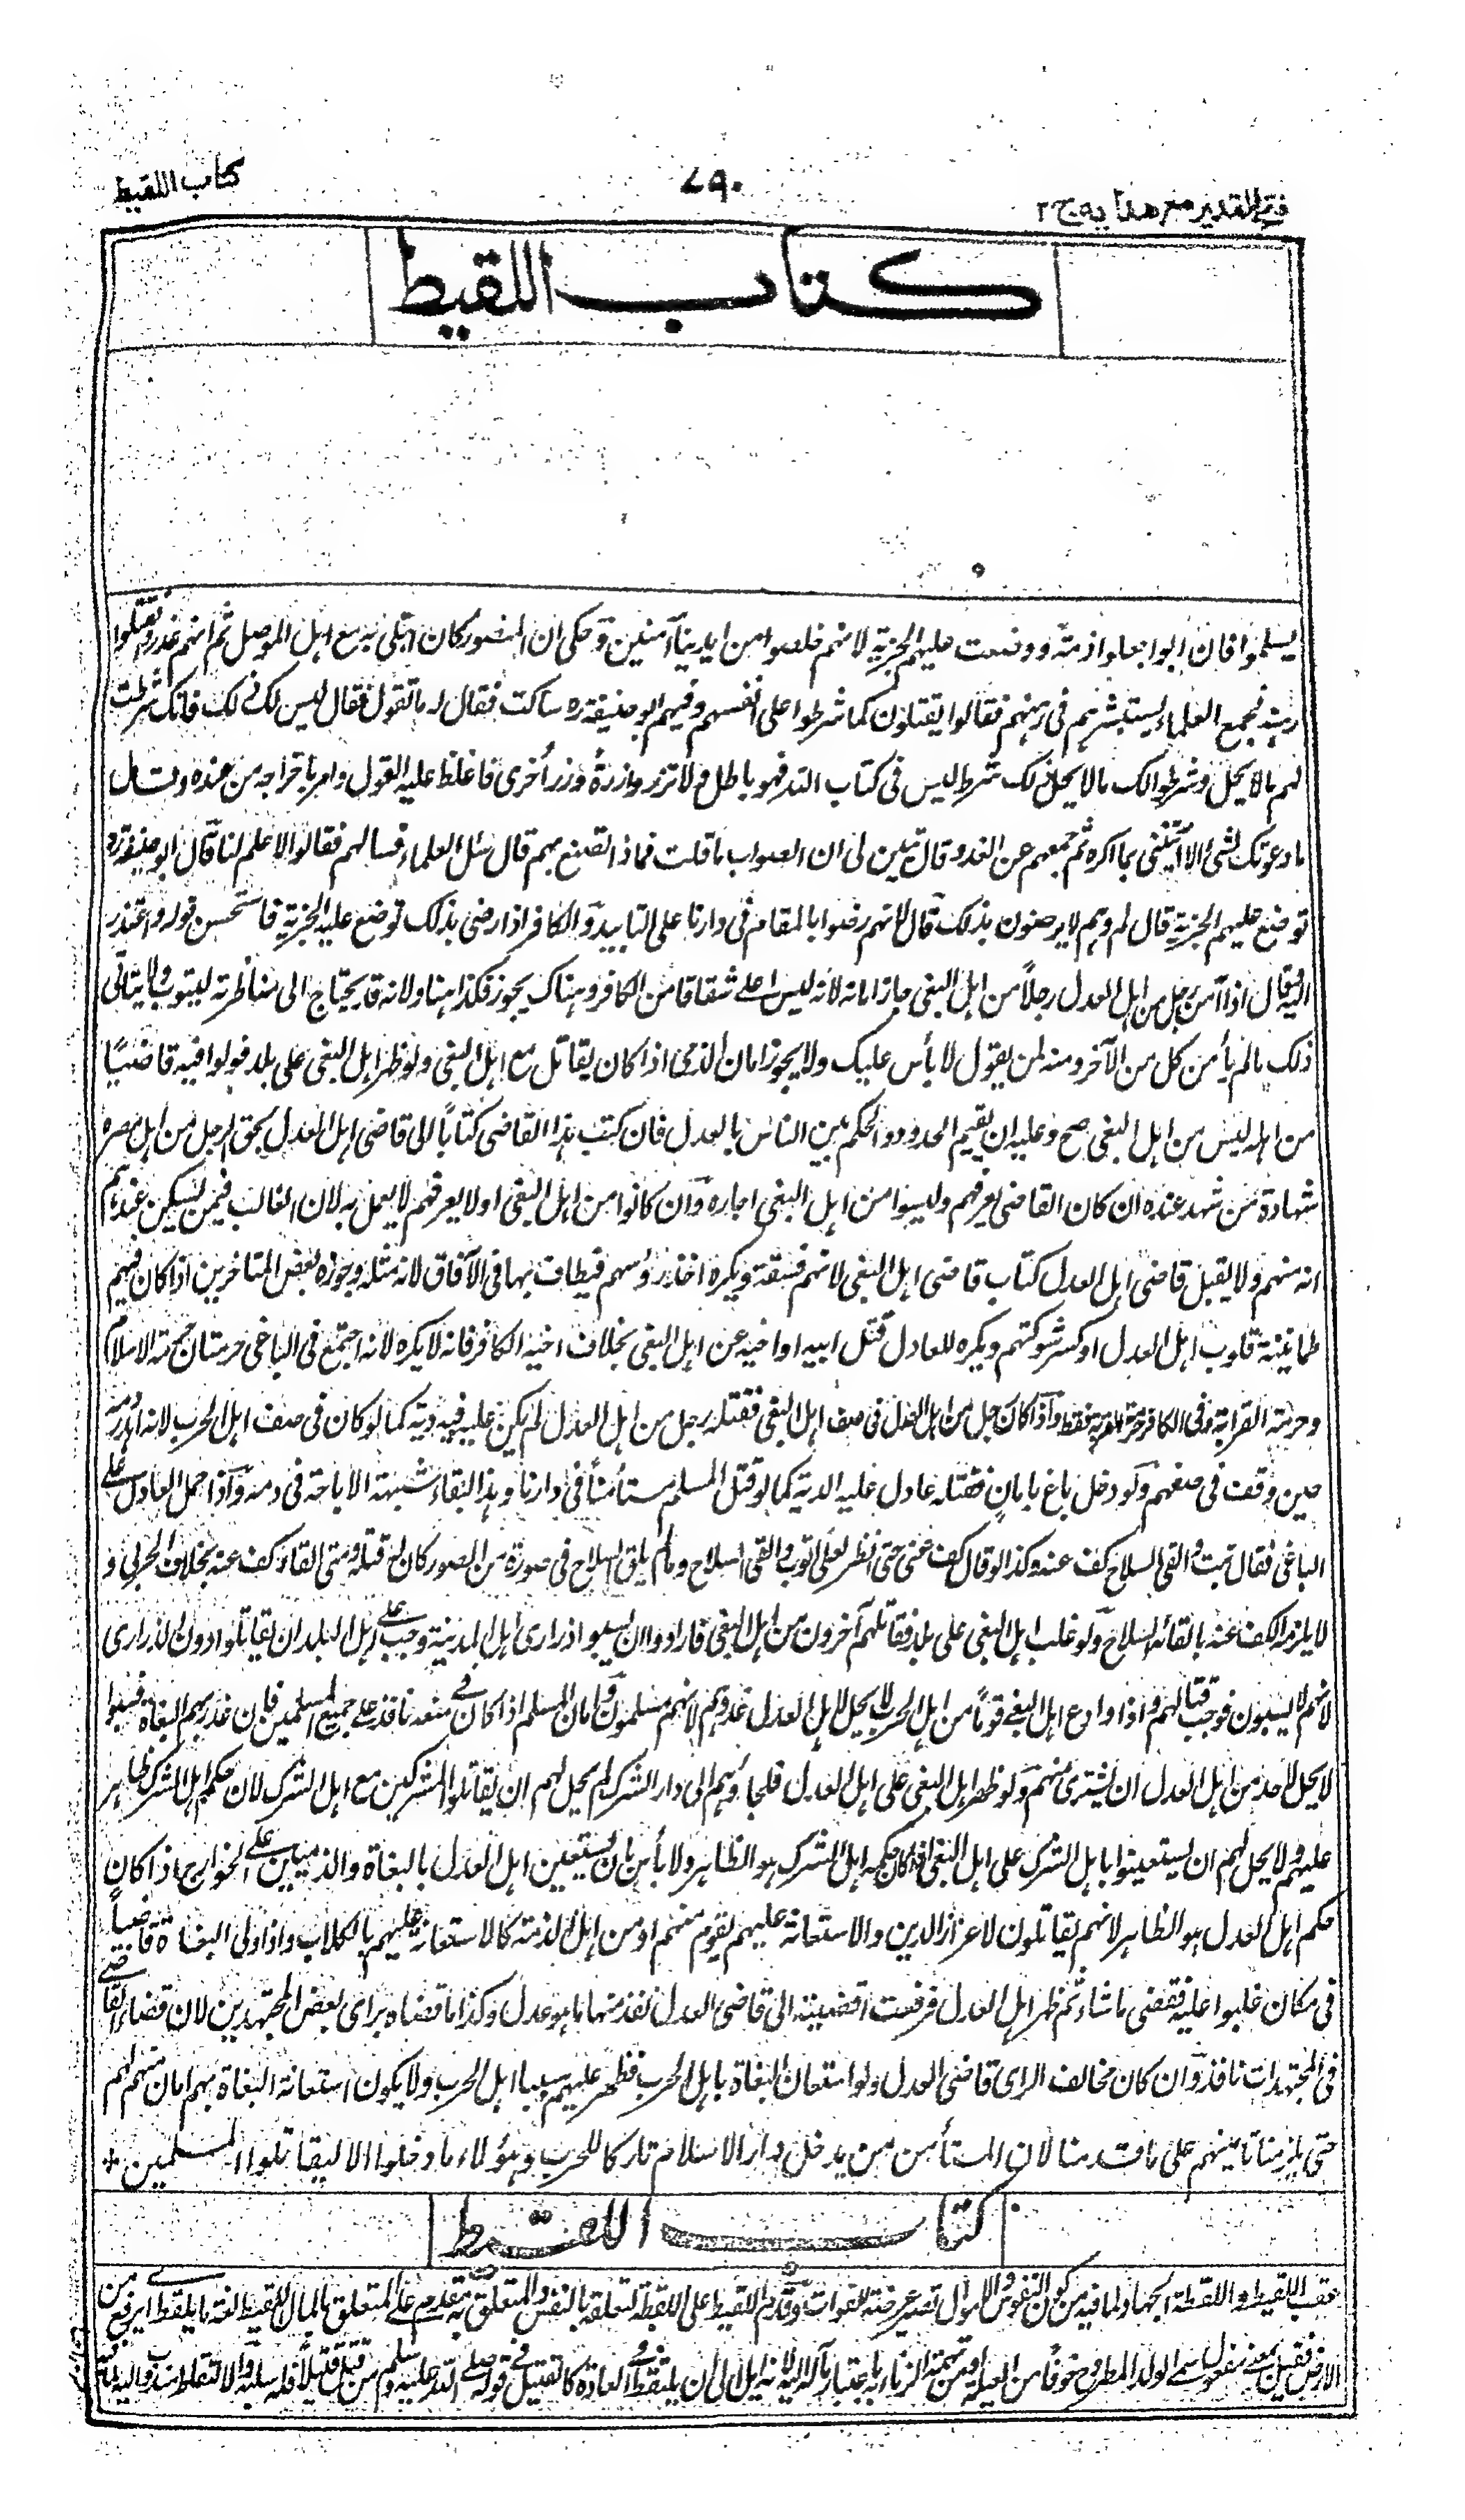 فتح القدير مع هدايه ج ٢
٧٩٠
كتاب اللقيط
كتاب اللقيط
يسلموا فان ابوا جعلوا ذمة ووضعت عليهم الجزية لانهم خلصوا من ايدينا آمنين وحكى ان المنصور كان ابتلى به مع اهل الموصل ثم انهم غدروا فقتلوا
رهنه فجمع العلماء ليستشيرهم فى رهنهم فقالوا يقتلون كما شرطوا على انفسهم وفيهم ابو حنيفة ره ساكت فقال له ما تقول فقال ليس لك ذلك فانك شرطت
لهم ما لا يحل وشرطوا لك ما لا يحل لك شرط ليس فى كتاب الله فهو باطل ولا تزر وازرة وزر أخرى فاغلظ عليه القول وامر باخراجه من عنده وقال
ما دعوتك لشئ الا أتيتنى بما اكره ثم جمعهم عن الغد وقال تبين لى ان الصواب ما قلت فماذا نصنع بهم قال سل العلماء فسالهم فقالوا لا علم لنا قال ابو حنيفة ره
توضع عليهم الجزية قال لم وهم لا يرضون بذلك قال لانهم رضوا بالمقام فى دارنا على التابيد والكافر اذا رضى بذلك توضع عليه الجزية فاستحسن قوله واعتذر
اليه يقال اذا آمن رجل من اهل العدل رجلاً من اهل البغى جاز امانه لانه ليس اعلى شقاقا من الكافر وهناك يجوز فكذا هنا ولانه قد يحتاج الى مناظرته ليتوب ولا يتاتى
ذلك ما لم يأمن كل من الآخر ومنه لمن يقول لا بأس عليك ولا يجوز امان الذمى اذا كان يقاتل مع اهل البغى ولو ظهر اهل البغى على بلد فولوا فيه قاضيًا
من اهله ليس من اهل البغى صح وعليه ان يقيم الحدود والحكم بين الناس بالعدل فان كتب هذا القاضى كتاباً الى قاضى اهل العدل بحق لرجل من اهل مصره
شهادة من شهد عنده ان كان القاضى يعرفهم وليسوا من اهل البغى اجازه وان كانوا من اهل البغى او لا يعرفهم لا يعمل به لان الغالب فيمن يسكن عندهم
انه منهم ولا يقبل قاضى اهل العدل كتاب قاضى اهل البغى لانهم فسقة ويكره اخذ رؤسهم فيطاف بها فى الآفاق لانه مثلة وجوزه بعض المتاخرين اذا كان فيهم
طمانينة قلوب اهل العدل او كسر شوكتهم ويكره للعادل قتل ابيه او اخيه عن اهل البغى بخلاف اخيه الكافر فانه لا يكره لانه اجتمع فى الباغى حرمتان حرمة الاسلام
وحرمة القرابة وفى الكافر حرمة القرابة فقط واذا كان رجل من اهل العدل فى صف اهل البغى فقتله رجل من اهل العدل لم يكن عليه فيه دية كما لو كان فى صف اهل الحرب لانه اهدر دمه
حين وقف فى صفهم ولو دخل باغ بامان فقتله عادل عليه الدية كما لو قتل المسلم مستأمناً فى دارنا وهذا البقاء شبهة الاباحة فى دمه واذا حمل العادل على
الباغى فقال تبت والقى السلاح كف عنه وكذا لو قال كف عنى حتى انظر لعلى اتوب والقى السلاح وما لم يلق السلاح فى صورة من الصور كان له قتله ومتى القاه كف عنه بخلاف الحربى و
لا يلزم الكف عنه بالقائه السلاح ولو غلب اهل البغى على بلد فقاتلهم آخرون من اهل البغى فارادوا ان يسبوا ذرارى اهل المدينة وجب على اهل البلد ان يقاتلوا دون الذرارى
لانهم لا يسبون فوجب قتالهم واذا وادع اهل البغى قوماً من اهل الحرب لا يحل لاهل العدل غدرهم لانهم مسلمون وامان المسلم اذا كان فى منعة نافذ على جميع المسلمين فان غدر بهم البغاة فسبوا
لا يحل لاحد من اهل العدل ان يشترى منهم ولو ظهر اهل البغى على اهل العدل فلجاوهم الى دار الشرك لم يحل لهم ان يقاتلوا المشركين مع اهل الشرك لان حكم اهل الشرك ظاهر
عليهم ولا يحل لهم ان يستعينوا باهل الشرك على اهل البغى اذا كان حكم اهل الشرك هو الظاهر ولا بأس بان يستعين اهل العدل بالبغاة والذميين على الخوارج اذا كان
حكم اهل العدل هو الظاهر لانهم يقاتلون لاعزاز الدين والاستعانة عليهم بقوم منهم او من اهل الذمة كالاستعانة عليهم بالكلاب واذا ولى البغاة قاضياً
فى مكان غلبوا عليه فقضى ما شاء ثم ظهر اهل العدل فرفعت اقضيته الى قاضى العدل نفذ منها ما هو عدل وكذا ما قضاه براى بعض المجتهدين لان قضاء القاضى
فى المجتهدات نافذ وان كان مخالف الراى قاضى العدل ولو استعان البغاة باهل الحرب فظهر عليهم سبينا اهل الحرب ولا يكون استعانة البغاة بهم امان منهم لهم
حتى يلزمنا تامينهم على ما قدمنا لان المستأمن من يدخل دار الاسلام تاركا للحرب وهؤلاء ما دخلوا الا ليقاتلوا المسلمين
كتاب اللقيط
عقب اللقيط واللقطة الجهاد لما فيه من كون النفوس والاموال تصير عرضة للفوات وقدم اللقيط على اللقطة لتعلقه بالنفس والمتعلق به مقدم على المتعلق بالمال اللقيط لغة ما يلقط اى يرفع من
الارض فعيل بمعنى مفعول سمى الولد المطروح خوفا من العيلة او من تهمة الزنا به باعتبار مآله لانه آيل الى ان يلتقط فى العادة كالقتيل فى قوله صلى الله عليه وسلم من قتل قتيلاً فله سلبه والالتقاط مندوب اليه